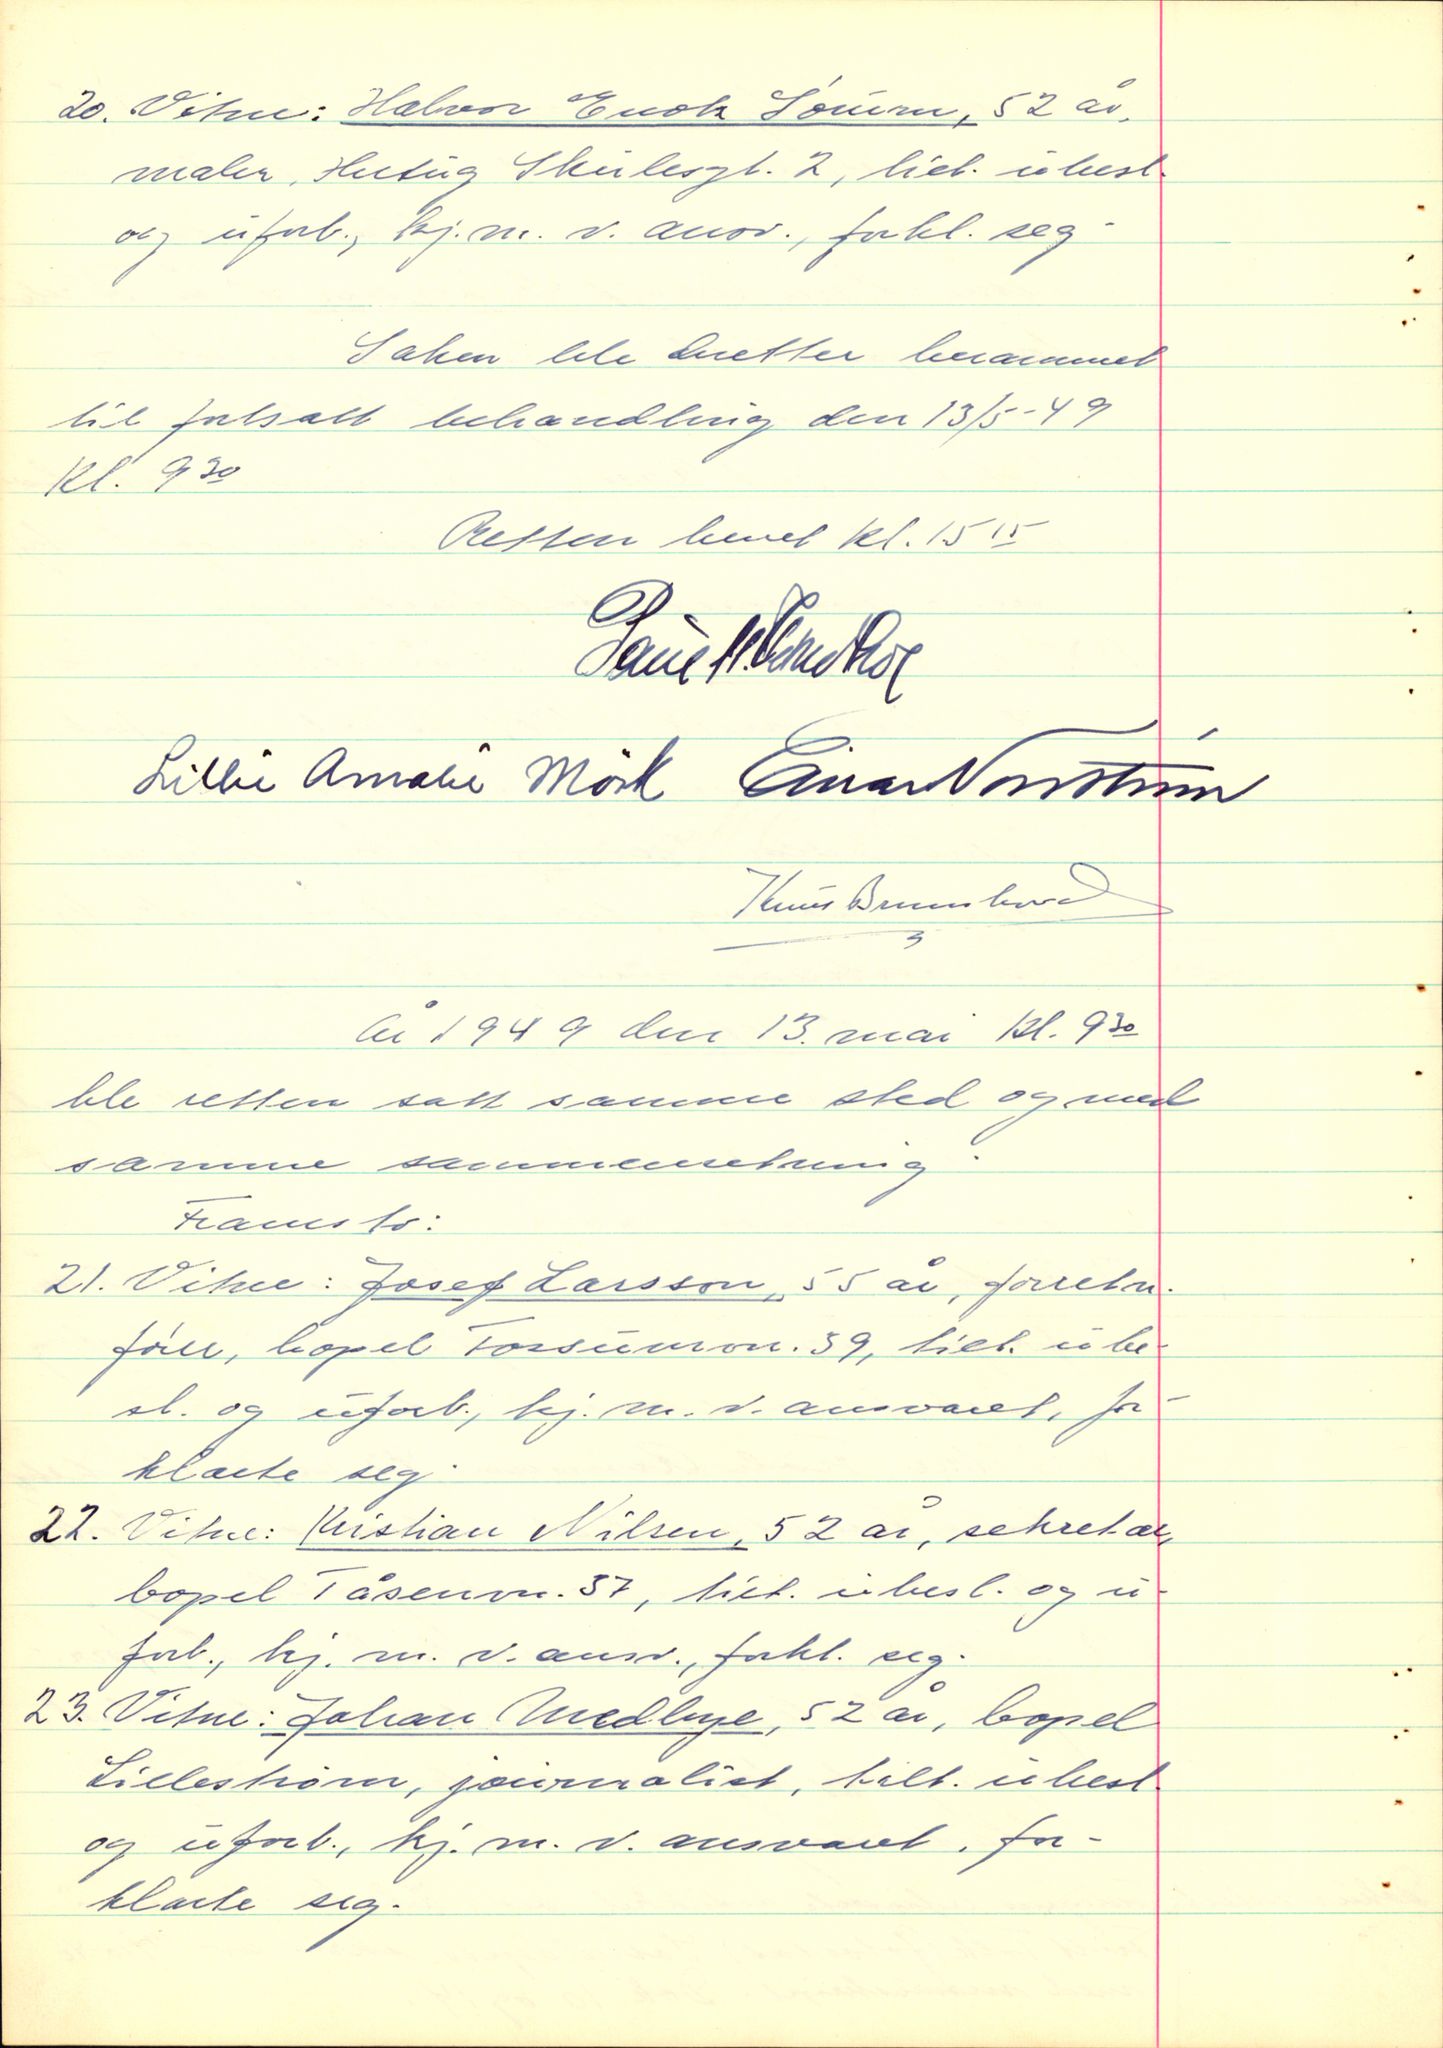 20. Vitne: Halvor Enok Sørum, 52 år,
maler, Hertug Skulesgt. 2, tilt. ubesl.
og uforb., kj. m. v. ansv., forkl. seg.
Saken ble deretter berammet
til fortsatt behandling den 13/5-49
kl. 9 30
Retten hevet kl. 15 15
Lillie Amalie Mörk Einar Norström
År 1949 den 13. mai kl. 9 30
ble retten satt samme sted og med
samme sammensetning.
Framsto:
21. Vitne: Josef Larsson, 55 år, forretn.
fører, bopel 39, tilt. ube-
sl. og uforb., kj. m. v. ansvaret, for-
klarte seg.
22. Vitne: Kristian Nilsen, 52 år, sekretær,
bopel Tåsenvn. 37, tilt. ubesl. og u-
forb., kj. m. v. ansv., forkl. seg.
23. Vitne: Johan Medbye, 52 år, bopel
Lillestrøm, journalist, tilt. ubesl.
og uforb., kj. m. v. ansvaret, for-
klarte seg.